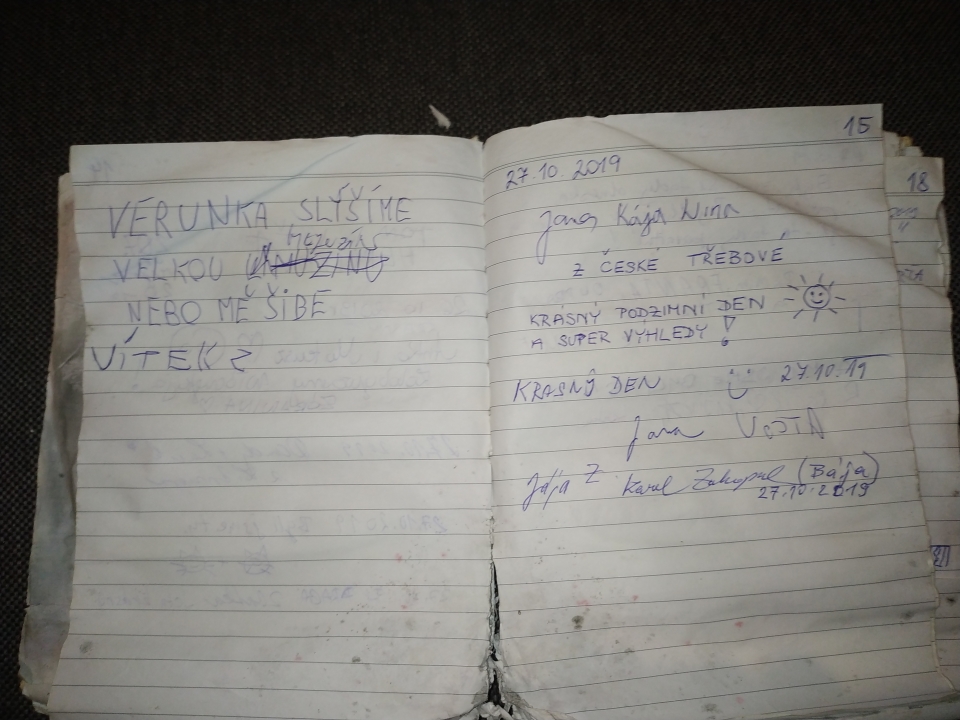 VERUNKA SLYŠÍME
VELKOU
NEBO MĚ ŠIBE
VÍTEK Z
15
27.10.2019
Jana Kája Nina
Z ČESKÉ TŘEBOVÉ
KRÁSNÝ PODZIMNÍ DEN
A SUPER VÝHLEDY!
KRASNÝ DEN 27.10.19
Jana VOJTA
Jája Z Karel Zakopal (Bája)
27.10.2019
18